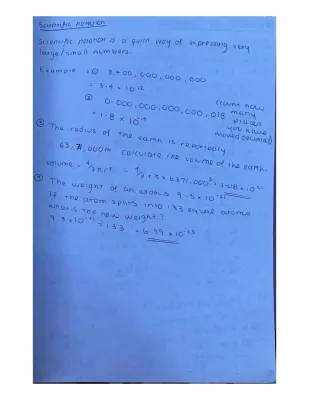 Scientific notation
Scientific notation is a quick way of expressing very
large/small numbers.
Example : ① 3,400,000,000,000
= 3.4 × 10¹²
② 0.000,000,000,000,018 (count how
many
places
you have
moved decimal)
= 1.8 ×
③ The radius of the earth is reportedly
m calculate the volume of the earth.
volume =
④ The weight of an atom is 9.3 ×
If the atom splits into 133 equal atoms
what is the new weight?
9.3 × 133 = 6.99 ×